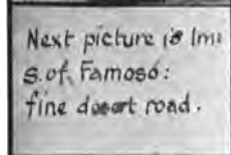 Next picture is 1mi
s.of. Famoso:
fine desert road.